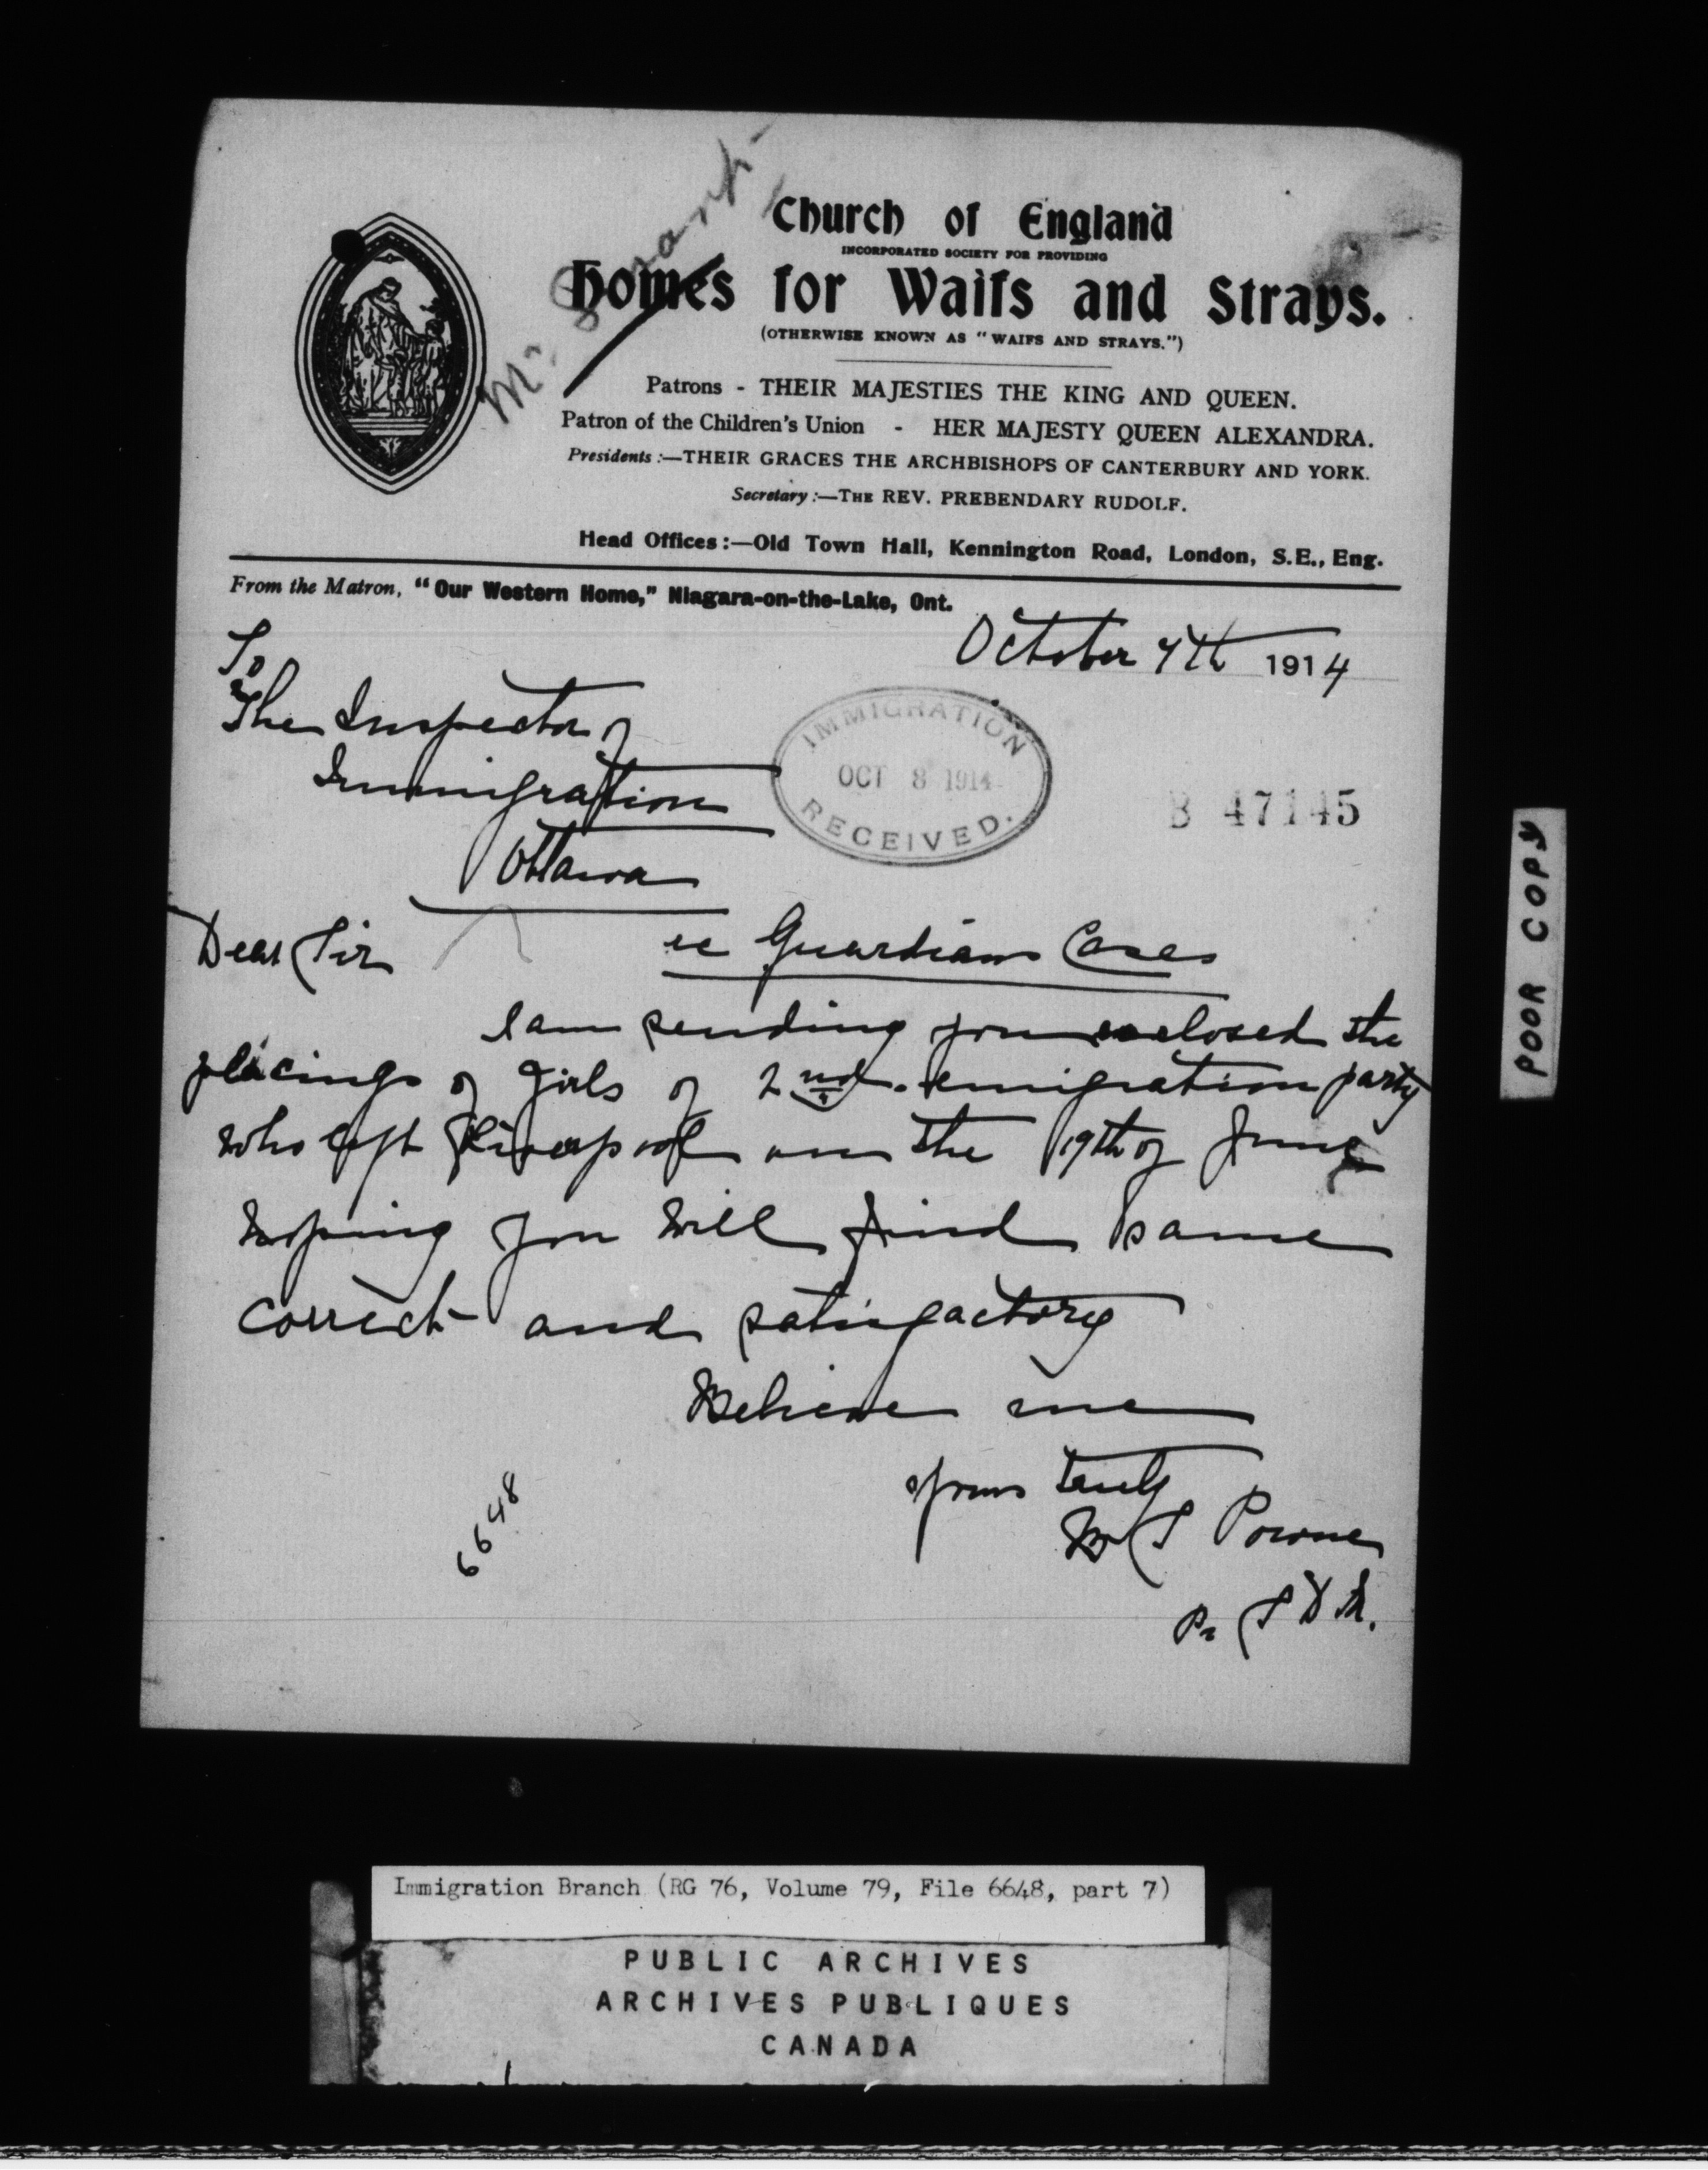 Mr. Smart
Church of England
INCORPORATED SOCIETY FOR PROVIDING
Homes for Waifs and Strays.
(OTHERWISE KNOWN AS "WAIFS AND STRAYS.")
Patrons - THEIR MAJESTIES THE KING AND QUEEN.
Patron of the Children's Union - HER MAJESTY QUEEN ALEXANDRA.
Presidents :—THEIR GRACES THE ARCHBISHOPS OF CANTERBURY AND YORK.
Secretary :—THE REV. PREBENDARY RUDOLF.
Head Offices :—Old Town Hall, Kennington Road, London, S.E., Eng.
From the Matron, "Our Western Home," Niagara-on-the-Lake, Ont.
October 7th 1914
To
The Inspector of
Immigration
Ottawa
IMMIGRATION
OCT 8 1914
RECEIVED.
B 47145
Dear Sir
re Guardians Cases
I am sending you enclosed the
placings of Girls of 2nd. emigration party
who left Liverpool on the 19th of June
hoping you will find same
correct and satisfactory
Believe me
yours truly
Powne
Pr
6648
POOR COPY
Immigration Branch (RG 76, Volume 79, File 6648, part 7)
PUBLIC ARCHIVES
ARCHIVES PUBLIQUES
CANADA